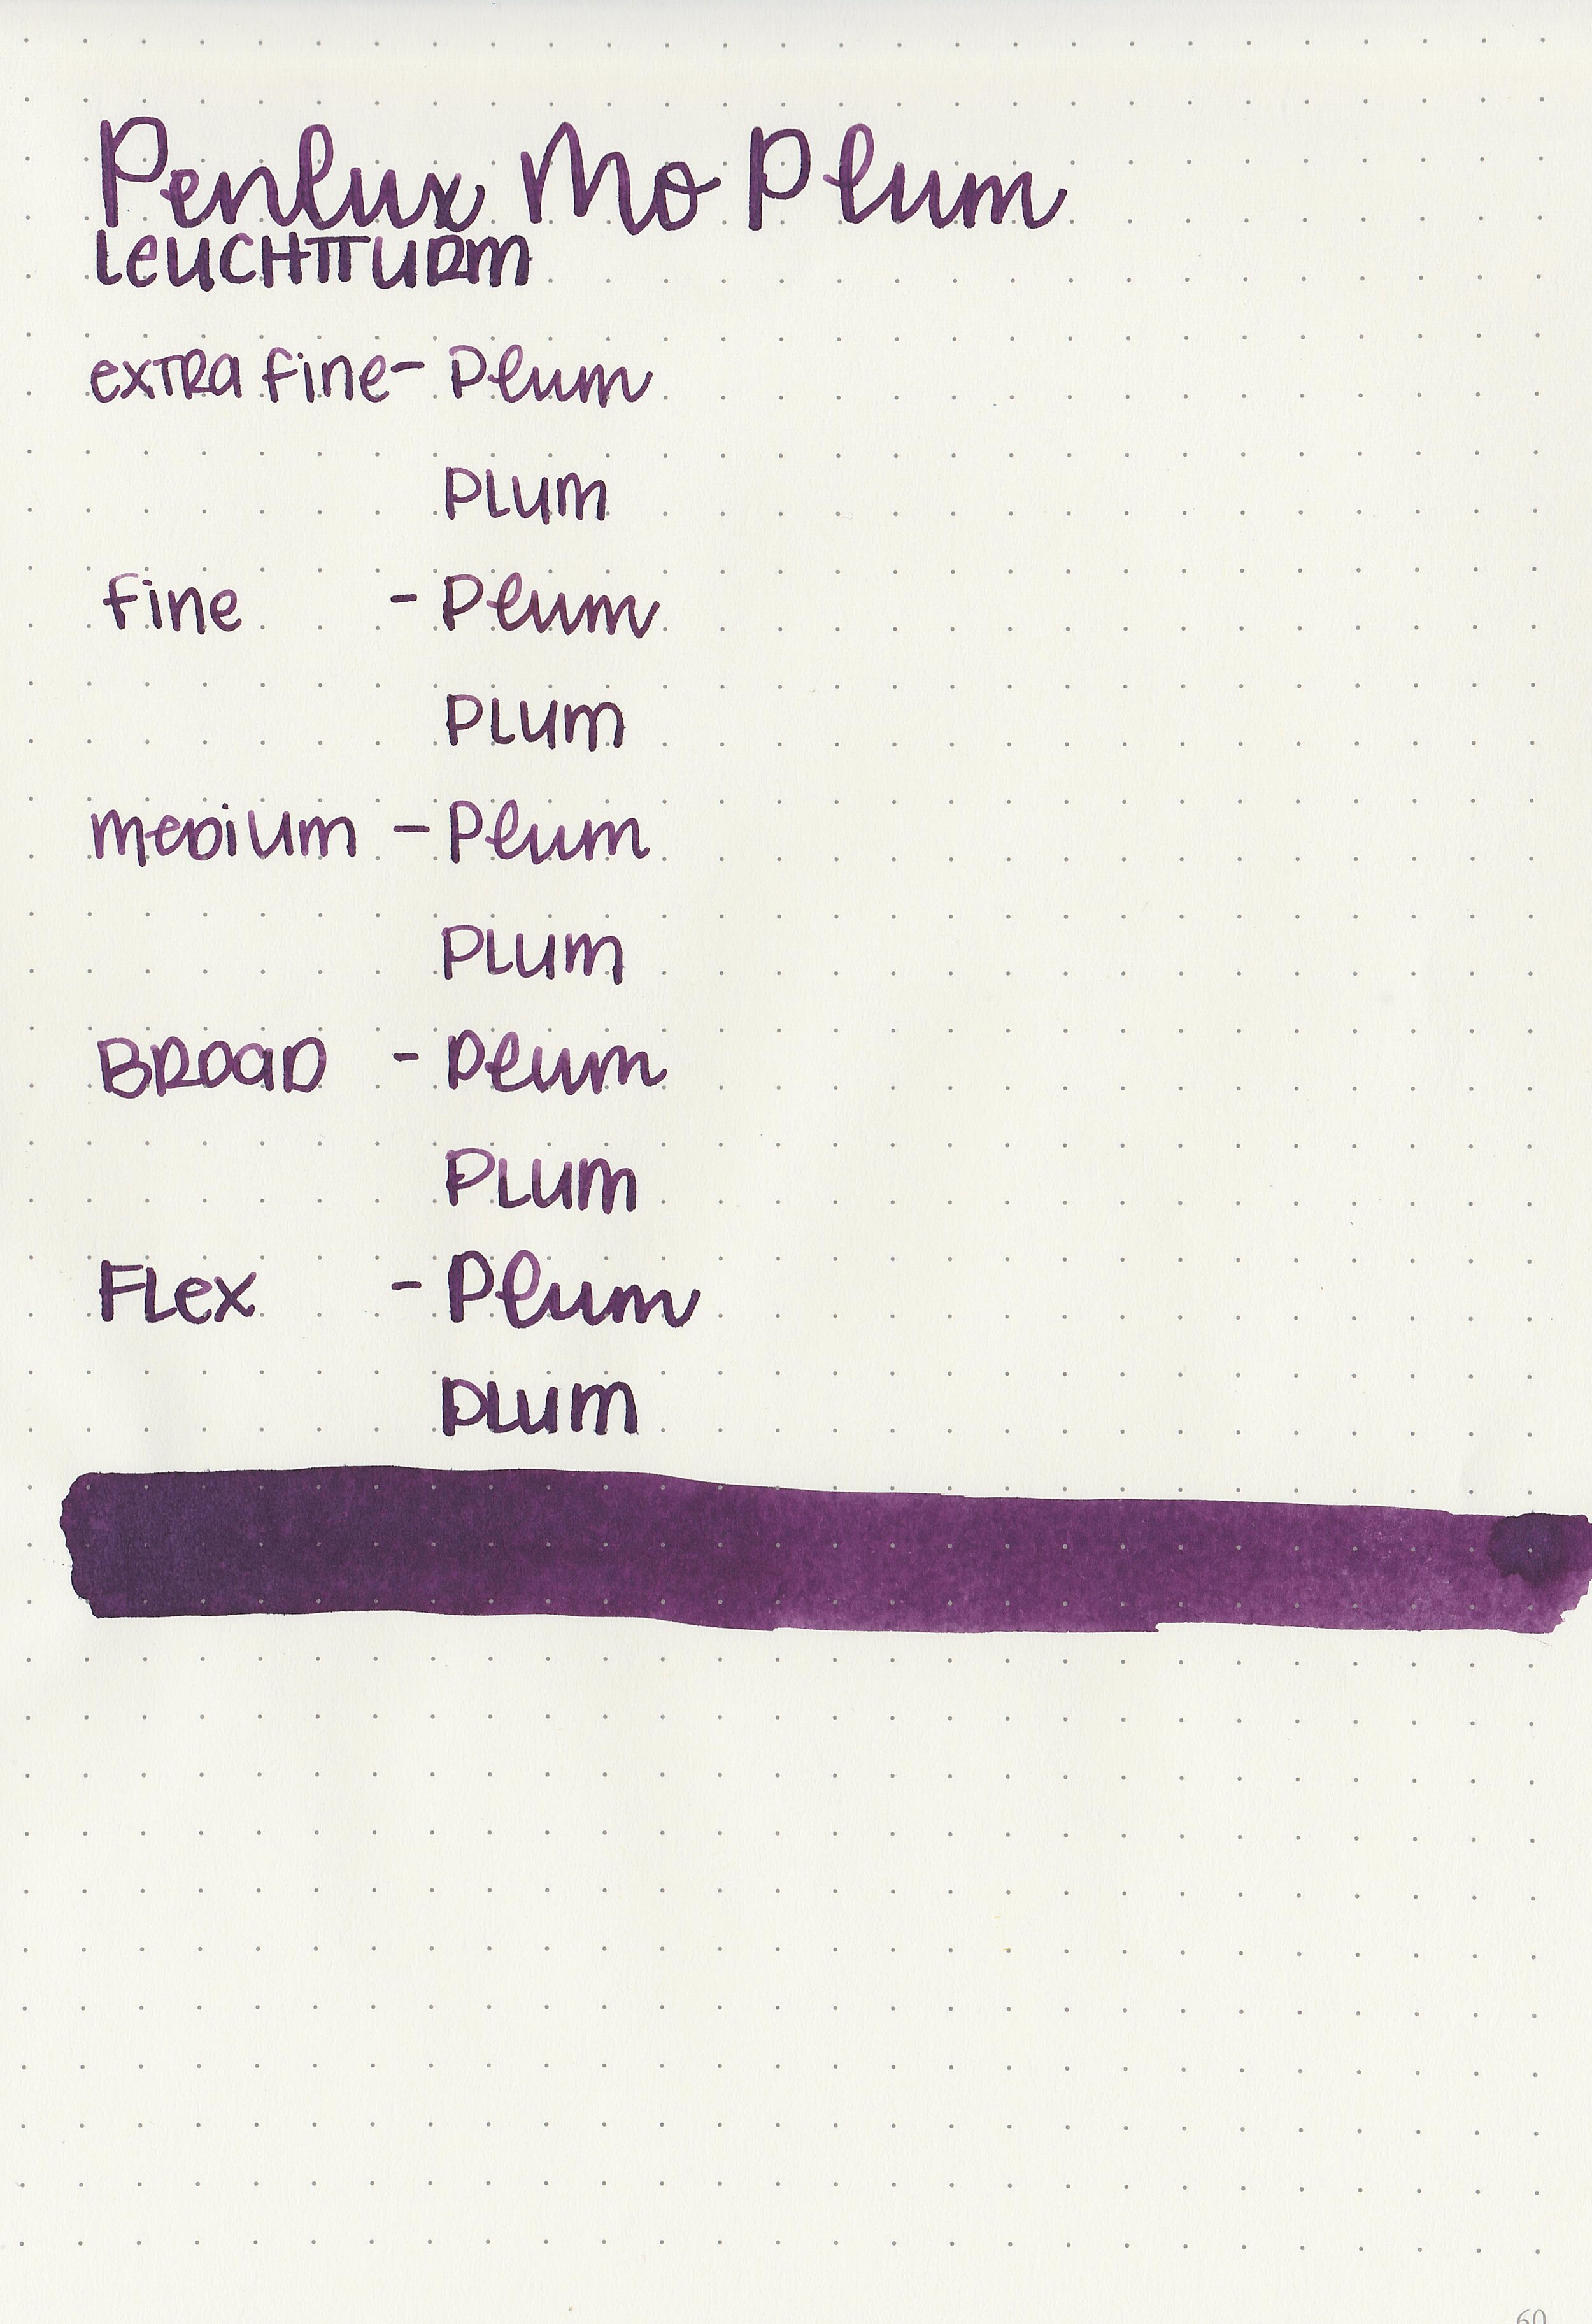 Penlux Mo Plum
LeUCHTTURM
exTRa fine - Plum
PLUM
fine - Plum
PLUM
meDiUm - Plum
PLUM
BROaD - Plum
PLUM
FLex - Plum
PLUM
60